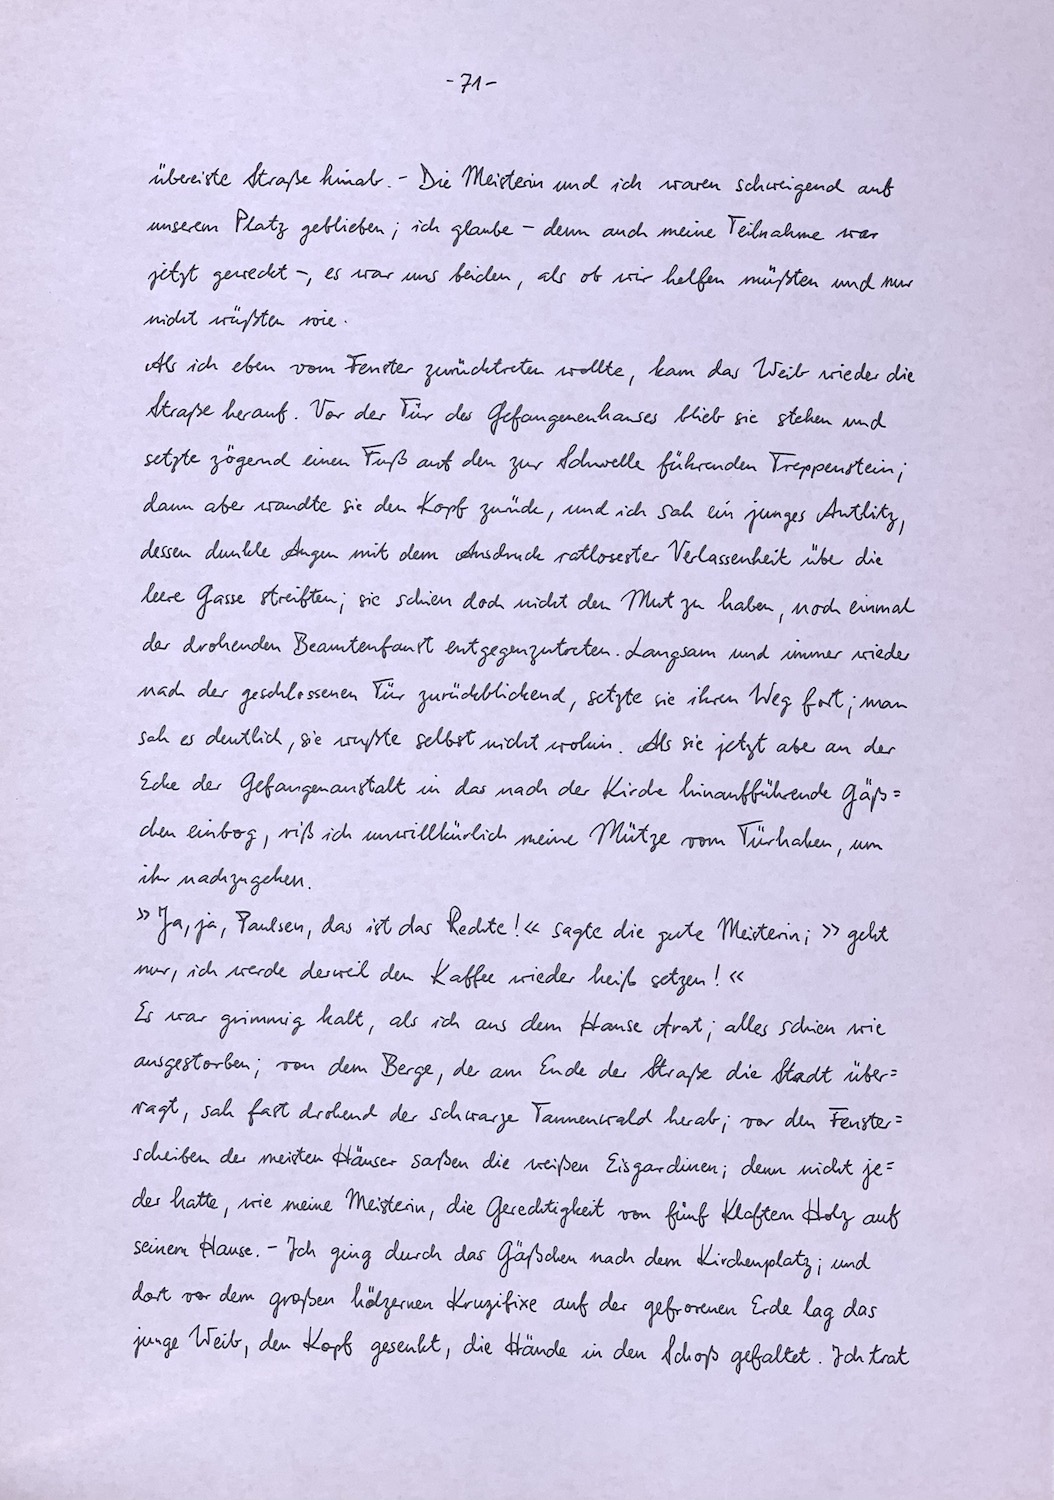 -71-
übereiste Straße hinab. – Die Meisterin und ich waren schweigend auf
unserem Platz geblieben; ich glaube – denn auch meine Teilnahme war
jetzt geweckt –, es war uns beiden, als ob wir helfen müßten und nur
nicht wüßten wie.
Als ich eben vom Fenster zurücktreten wollte, kam das Weib wieder die
Straße herauf. Vor der Tür des Gefangenenhauses blieb sie stehen und
setzte zögernd einen Fuß auf den zur Schwelle führenden Treppenstein;
dann aber wandte sie den Kopf zurück, und ich sah ein junges Antlitz,
dessen dunkle Augen mit dem Ausdruck ratlosester Verlassenheit übe die
leere Gasse streiften; sie schien doch nicht den Mut zu haben, noch einmal
der drohenden Beamtenfaust entgegenzutreten. Langsam und immer wieder
nach der geschlossenen Tür zurückblickend, setzte sie ihren Weg fort; man
sah es deutlich, sie wußte selbst nicht wohin. Als sie jetzt aber an der
Ecke der Gefangenanstalt in das nach der Kirche hinaufführende Gäß=
chen einbog, riß ich unwillkürlich meine Mütze vom Türhaken, um
ihr nachzugehen.
»Ja, ja, Paulsen, das ist das Rechte!« sagte die gute Meisterin; »geht
nur, ich werde derweil den Kaffee wieder heiß setzen!«
Es war grimmig kalt, als ich aus dem Hause trat; alles schien wie
ausgestorben; von dem Berge, der am Ende der Straße die Stadt über=
ragt, sah fast drohend der schwarze Tannenwald herab; vor den Fenster=
scheiben der meisten Häuser saßen die weißen Eisgardinen; denn nicht je=
der hatte, wie meine Meisterin, die Gerechtigkeit von fünf Klaftern Holz auf
seinem Hause. – Ich ging durch das Gäßchen nach dem Kirchenplatz; und
dort vor dem großen hölzernen Kruzifixe auf der gefrorenen Erde lag das
junge Weib, den Kopf gesenkt, die Hände in den Schoß gefaltet. Ich trat